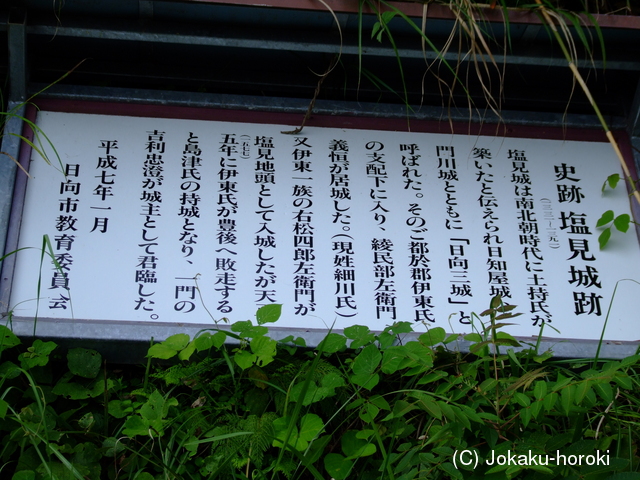 史跡 塩見城跡
塩見城は南北朝時代に土持氏が
築いたと伝えられ日知屋城、
門川城とともに「日向三城」と
呼ばれた。そのご都於郡伊東氏
の支配下に入り、綾民部左衛門
義恒が居城した。（現姓細川氏）
又伊東一族の右松四郎左衛門が
塩見地頭として入城したが天
五年に伊東氏が豊後へ敗走する
（一五七七）
と島津氏の持城となり、一門の
吉利忠澄が城主として君臨した。
平成七年一月
日向市教育委員会
(C) Jokaku-horoki